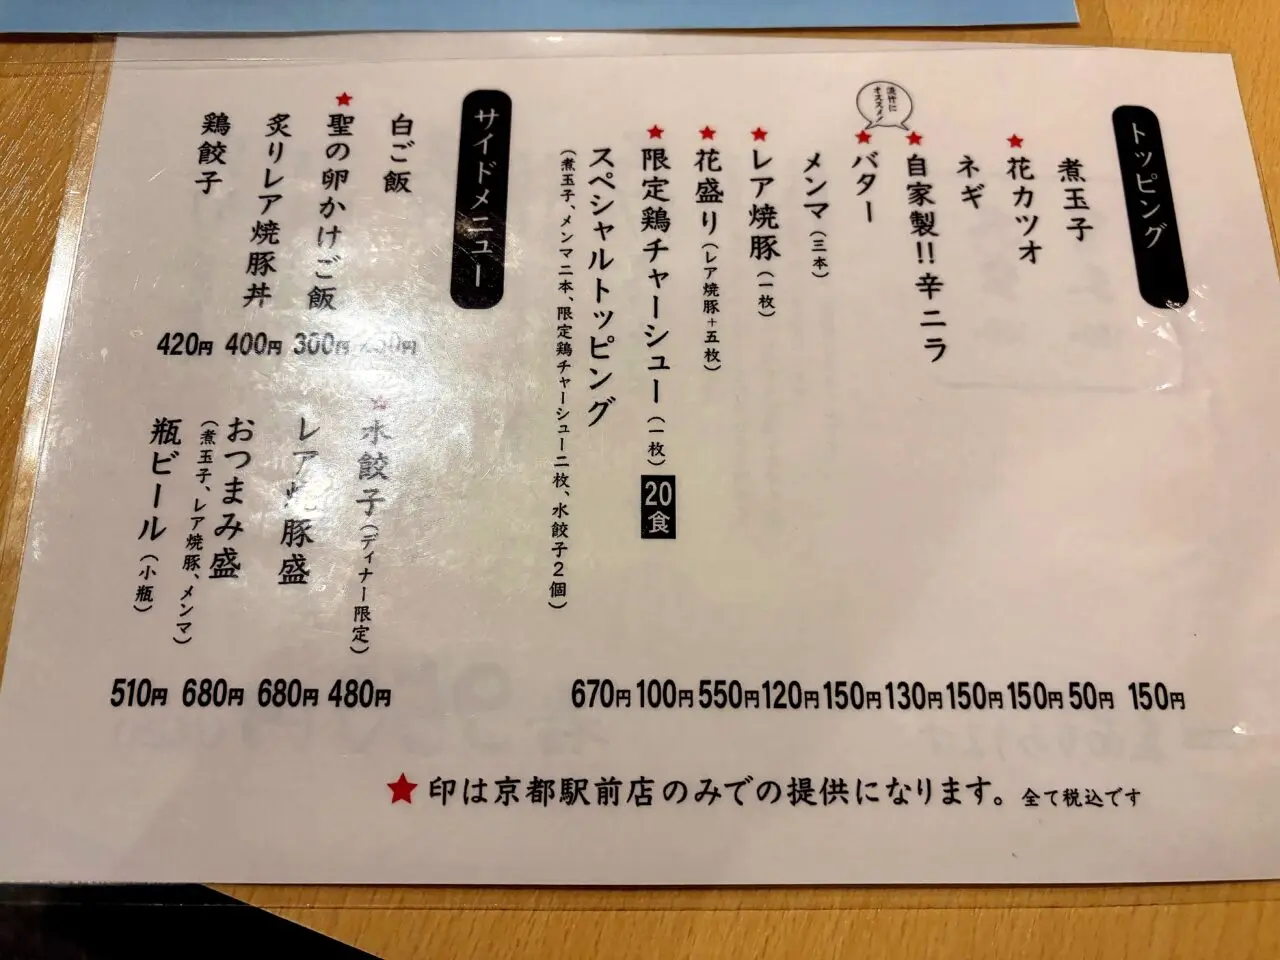 トッピング
煮玉子 150円
花カツオ 50円
ネギ 150円
オススメ!
★自家製!!辛ニラ 150円
★バター 130円
メンマ(三本) 150円
★レア焼豚(一枚) 120円
★花盛り(レア焼豚+五枚) 550円
★限定鶏チャーシュー(一枚) 20食 100円
スペシャルトッピング 670円
(煮玉子、メンマ二本、限定鶏チャーシュー二枚、水餃子2個)
サイドメニュー
白ご飯
★聖の卵かけご飯 300円
炙りレア焼豚丼 400円
鶏餃子 420円
★水餃子(ディナー限定) 480円
レア焼豚盛 680円
おつまみ盛 680円
(煮玉子、レア焼豚、メンマ)
瓶ビール(小瓶) 510円
★印は京都駅前店のみでの提供になります。全て税込です